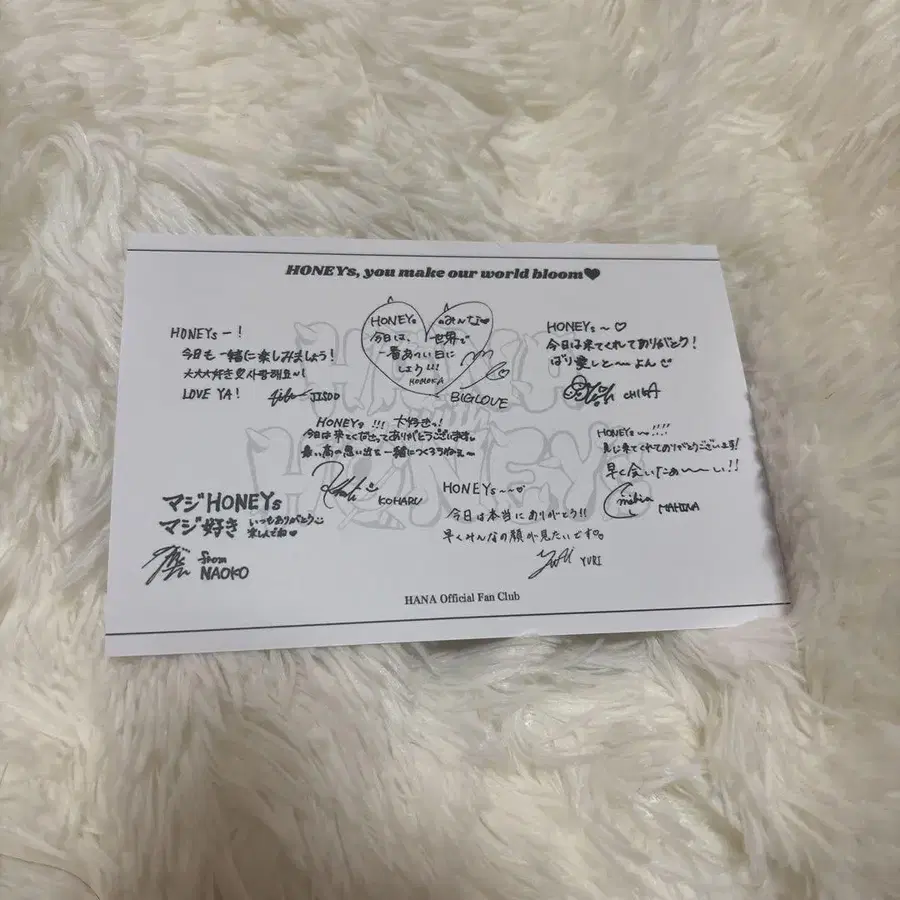 HONEYs, you make our world bloom♥
HONEYsー!
今日も一緒に楽しみましょう!
大大大好き 사랑해요~!
LOVE YA!
JISOO
HONEYsのみんな♥
今日は、世界で
一番あつい日に
しよう!!!
MOMOKA
BIGLOVE
HONEYs~♡
今日は来てくれてありがとう!
ばり愛しと~よん
CHIKA
HONEYs !!! 大好きっ!
今日は来てくださってありがとうございます。
最っ高の思い出を一緒につくろうねぇ~
KOHARU
HONEYs~!!!!
見に来てくれてありがとうございます!
早く会いたぁ~~い!!
mahina
MAHINA
マジHONEYs
マジ好き
いつもありがとう
楽しんでね♥
from
NAOKO
HONEYs~~♡
今日は本当にありがとう!!
早くみんなの顔が見たいです
YURI
YURI
HANA Official Fan Club